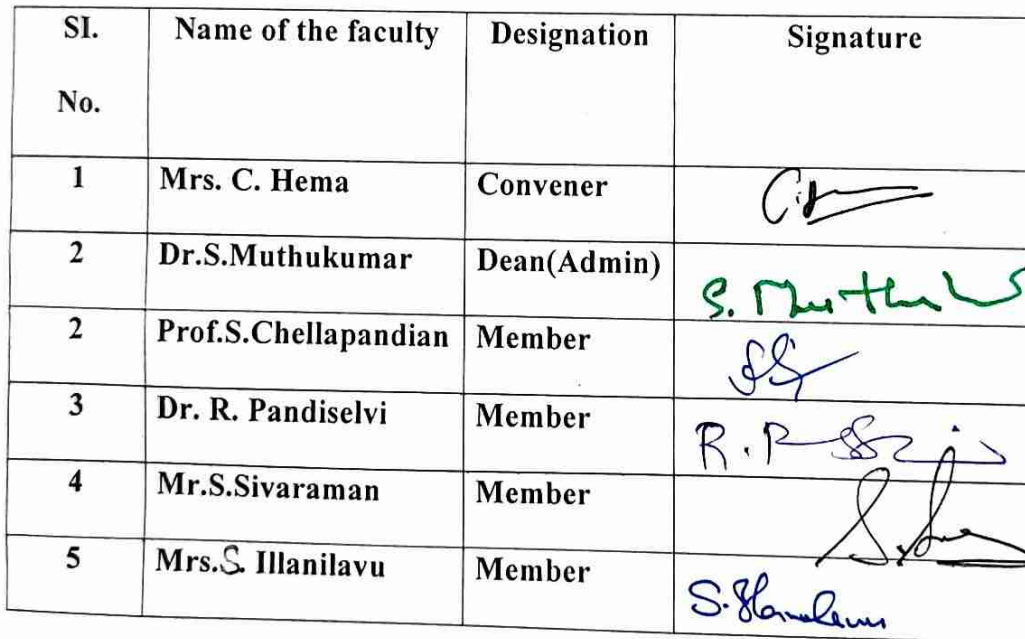 SI. No. Name of the faculty Designation Signature
1 Mrs. C. Hema Convener
2 Dr.S.Muthukumar Dean(Admin) S. Muthu
2 Prof.S.Chellapandian Member
3 Dr. R. Pandiselvi Member R. P
4 Mr.S.Sivaraman Member
5 Mrs.S. Illanilavu Member S.